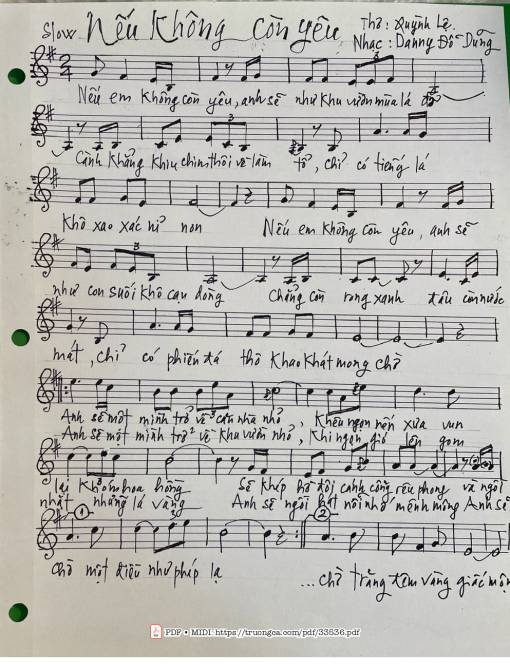 slow Nếu Không còn yêu
Thơ : Quỳnh Lệ.
Nhạc : Danny Đỗ Dũng
Nếu em không còn yêu, anh sẽ như khu vườn mùa lá đổ
Cành khẳng khiu chim thôi về làm tổ, chỉ có tiếng lá
khô xao xác nỉ non Nếu em không còn yêu, anh sẽ
như con suối khô cạn dòng Chẳng còn rong xanh đâu còn nước
mát, chỉ có phiến đá thô khao khát mong chờ
Anh sẽ một mình trở về căn nhà nhỏ, khêu ngọn nến xưa vun
Anh sẽ một mình trở về khu vườn nhỏ, khi ngọn gió lên gom
lại khô hoa hồng Sẽ khép hờ đôi cánh cổng rêu phong và ngồi
nhặt những lá vàng Anh sẽ ngồi hát nỗi nhớ mênh mông Anh sẽ
1 2
chờ một điều như phép lạ ...chờ trăng đêm vàng giấc mộn
PDF • MIDI: https://truongca.com/pdf/33536.pdf